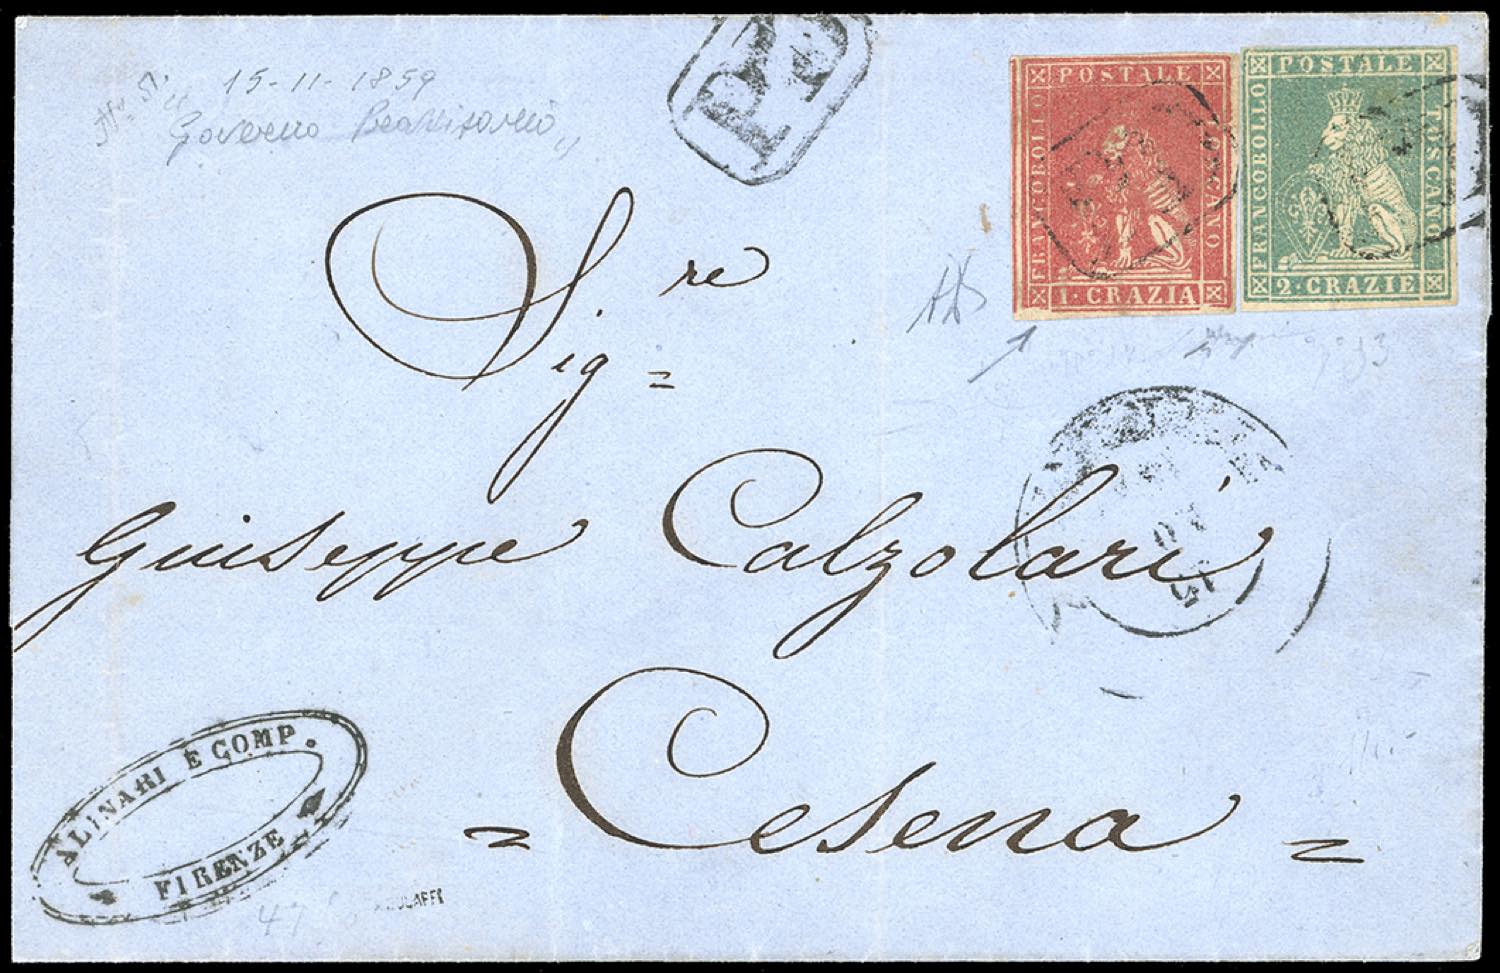 15-11-1859
"Governo Provvisorio"
PD
FRANCOBOLLO POSTALE TOSCANO
1·CRAZIA
FRANCOBOLLO POSTALE TOSCANO
2·CRAZIE
PD
Sig.re
Giuseppe Calzolari
= Cesena =
ALINARI E COMP.
FIRENZE